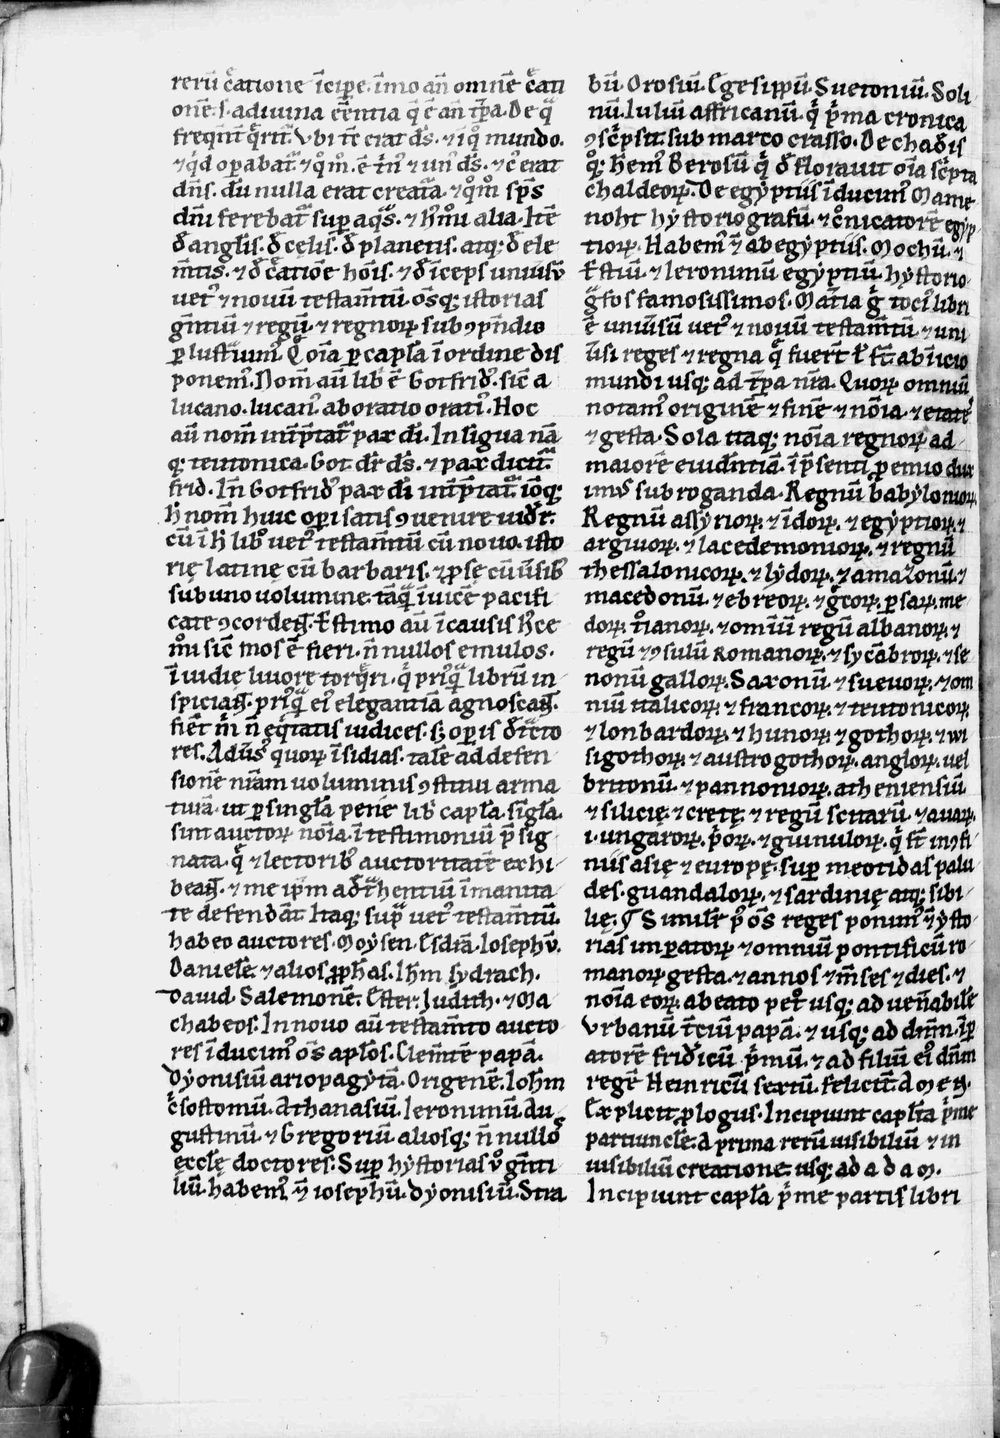 rerū c̄atione īcipe. īmo an̄ omnē c̄ati
onē. s. a diuina eēntia q̄ ē an̄ tp̄a. De q̄
freq̄nt̄ q̄rit̄. Vbi tc̄ erat ds̄. ⁊ iq̊ mundo.
⁊ qd opabat̄. ⁊ q̊m̄. ē t̄nꝰ ⁊ unꝰ ds̄. ⁊ c̄ erat
dn̄s. dū nulla erat creat̄a. ⁊ q̊m̄ sp̄s
dn̄i ferebat̄ sup aq̄s. ⁊ hꝰm̊ alia. Itē
đ angl̄is. đ cęlis. đ planetis. atq; đ ele
m̄tis. ⁊ đ c̄atiōe hōis. ⁊ đ īceps uniūsū
uetꝰ ⁊ nouū testam̄tū. om̄sq; istorias
gn̄tiū ⁊ regū. ⁊ regnoꝝ sub ꝯpn̄dio
ꝑlustͣuimꝰ. Q̊ om̄ia ꝑ capl̄a ī ordine dis
ponemꝰ. Nom̄ aū libͥ ē Gotfridꝰ. sic̄ a
lucano. lucanꝰ. ab oratio oratiꝰ. Hoc
aū nom̄ int̄ptat̄ pax di. In ligua nā
q; teutonica. Got. dr̄ ds̄. ⁊ pax dicit̄
frid. In̄ Gotfridꝰ pax di int̄ptat̄. iōq;
h̄ nom̄ huic opi satis ꝯuenire uidet̄.
cū ī h̄ libͦ uetꝰ testam̄tū cū nouo. isto
rię latinę cū barbaris. ⁊ ꝓsę cū ūsibꝰ
sub uno uolumine. tāq̄ īuicē pacifi
cate ꝯcordet̄. Estimo aū ī causis hꝰce
m̊i sic̄ mos ē fieri. n̄ nullos emulos.
īuidie liuore torq̄ri. q̄ priꝰq̄ librū in
spiciāt. priꝰq̄ eiꝰ elegantiā agnoscāt.
fiēt m̄ n̄ eq̄tatis iudices. s; opis đtͣcto
res. Aduꝰs quoꝝ īsidias. tale ad defen
sionē nr̄am uoluminis ꝯstitui arma
turā. ut ꝑ singl̄a pene libͥ capl̄a. sīgl̄a
sint auctoꝝ nōia. ī testimoniū p̄sig
nata. q̄ ⁊ lectoribꝰ auctoritatē exhi
beāt. ⁊ me ip̄m a đtͣhentiū īmanita
te defendāt. Itaq; sup̄ uetꝰ testam̄tū
habeo auctores. Moysen. Esdrā. Iosephū.
Danielē. ⁊ alios ꝓph̄as. Ihm̄ sydrach.
Dauid. Salemonē. Ester. Iudith. ⁊ Ma
chabeos. In nouo aū testam̄to aucto
res īducimꝰ om̄s aplōs. Clem̄tē papā.
Dyonisiū ariopagytā. Origenē. Iohm̄
c̄sostomū. Athanasiū. Ieronimū. Au
gustinū. ⁊ Gregoriū. aliosq; n̄ nullos
eccl̄ę doctores. Sup hystorias ů gn̄ti
liū. habemꝰ n̄ iosephū. Dyonisiū. Stra
bū. Orosiū. Egesippū. Suetoniū. Soli
nū. Iuliū affricanū. q̄ p̄ma cronica
ꝯsc̄psit. sub marco crasso. De chald̄is
q̊; hem̄ꝰ Berosū q̄ defloravit om̄ia sc̄pta
chaldeoꝝ. De egyptiis īducimꝰ Mame
noht hystoriografū. ⁊ c̊nicatorē egyp
tioꝝ. Habemꝰ n̄ ab egyptiis. Mochū. ⁊
Estiū. ⁊ Ieronimū egyptiū. hystorio
gͣfos famosissimos. Matīa g̊ tociꝰ libri
ē uniūsū uetꝰ ⁊ nouū testam̄tū. ⁊ uni
ūsi reges ⁊ regna q̄ fuert̄ ł st̄ ab īnicio
mundi usq; ad tp̄a nr̄a. Quoꝝ omniū
notamꝰ originē ⁊ finē ⁊ nōia. ⁊ etatē
⁊ gesta. Sola itaq; nōia regnoꝝ ad
maiorē euidn̄tiā. ī p̄senti ꝓemio dux
imꝰ subroganda. Regnū babylonioꝝ.
Regnū assyrioꝝ. ⁊ īdoꝝ. ⁊ egyptioꝝ. ⁊
argiuoꝝ. ⁊ lacedemonioꝝ. ⁊ regnū
thessalonicoꝝ. ⁊ lydoꝝ. ⁊ amazonū. ⁊
macedonū. ⁊ ebreoꝝ. ⁊ gͤcoꝝ. ꝑsaꝝ. me
doꝝ. tͦianoꝝ. ⁊ omīū regū albanoꝝ. ⁊
regū ⁊ ꝯsulū Romanoꝝ. ⁊ sycābroꝝ. ⁊ se
nonū galloꝝ. Saxonū ⁊ sueuoꝝ. ⁊ om
niū italicoꝝ. ⁊ francoꝝ. ⁊ teutonicoꝝ.
⁊ lonbardoꝝ. ⁊ hunoꝝ. ⁊ gothoꝝ. ⁊ wi
sigothoꝝ. ⁊ austrogothoꝝ. angloꝝ. uel
britonū. ⁊ pannonioꝝ. atheniensiū
⁊ silicię. ⁊ cretę. ⁊ regū scitarū. ⁊ auaꝝ.
i. ungaroꝝ. p̄oꝝ. ⁊ guinuloꝝ. q̄ st̄ in ꝯfi
niis asię ⁊ europę. sup meotidas palu
des. guandaloꝝ. ⁊ sardinię atq; sibi
lię. ¶ Similiꝰ p̊ om̄s reges ponimꝰ n̄ ysto
rias impatoꝝ. ⁊ omniū pontificū ro
manoꝝ gesta. ⁊ annos ⁊ m̄ses ⁊ dies. ⁊
nōia eoꝝ. a beato petͦ usq; ad ueñabilē
Vrbanū tc̄iū papā. ⁊ usq; ad dnm̄. īp
atorē fridicū p̄mū. ⁊ ad filiū eiꝰ dn̄m
regē Heinricū sextū. feliciter̄. AMEN.
Explicit ꝓlogus. Incipiunt capl̄a p̄me
partiuncl̄e. A prima rerū uisibiliū ⁊ in
uisibiliū creatione. usq; ad ADAM.
Incipiunt capl̄a p̄me partis libri